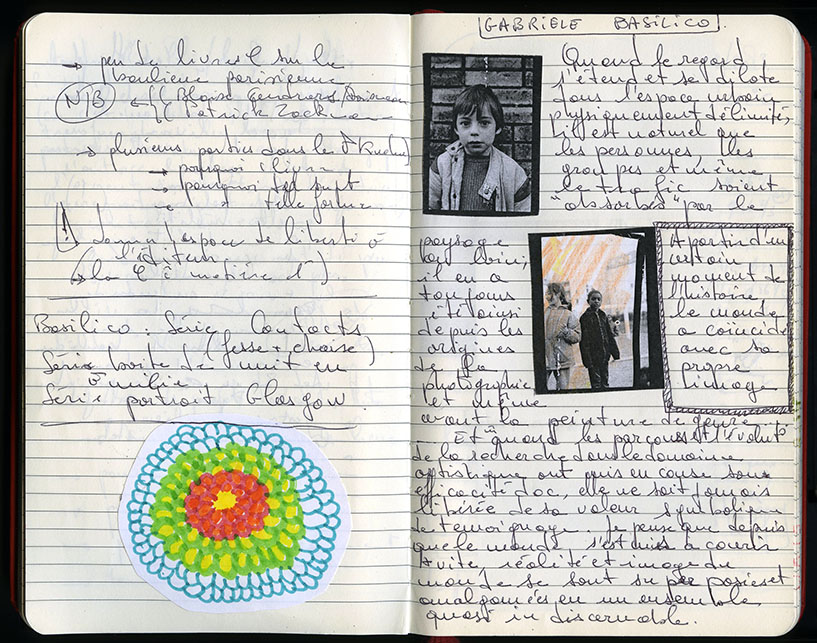 → peu de livres sur la
banlieue parisienne
N/B ← Blaise Cendrars/Doisneau
Patrick Zachmann
→ plusieurs parties dans le
→ pourquoi 1 livre
→ pourquoi tel
→ " telle forme
! donner 1 espace de liberté à
l'éditeur
(la "matière 1ère")
Basilico : Série Contacts
(fesse + chaise)
Série boite de nuit en
émilie
Série portrait Glasgow.
GABRIELE BASILICO
Quand le regard
s'étend et se dilate
dans l'espace urbain
physiquement délimité,
il est naturel que
les personnes, les
groupes et même
le trafic soient
"absorbés" par le
paysage
bâti,
il en a
toujours
été ainsi
depuis les
origines
de la
photographie
et même
avant la peinture de genre.
A partir d'un
certain
moment de
l'histoire
le monde
a coïncidé
avec sa
propre
image
Et quand les parcours et l'évoluté
de la recherche dans le domaine
artistique ont mis en cause son
efficacité doc, elle ne soit jamais
libérée de sa valeur symbolique
de temoignage. Je pense que depuis
que le monde s'est mis à courir
+ vite, réalité et image du
monde se sont superposées et
amalgamées en un ensemble
quasi indiscernable.